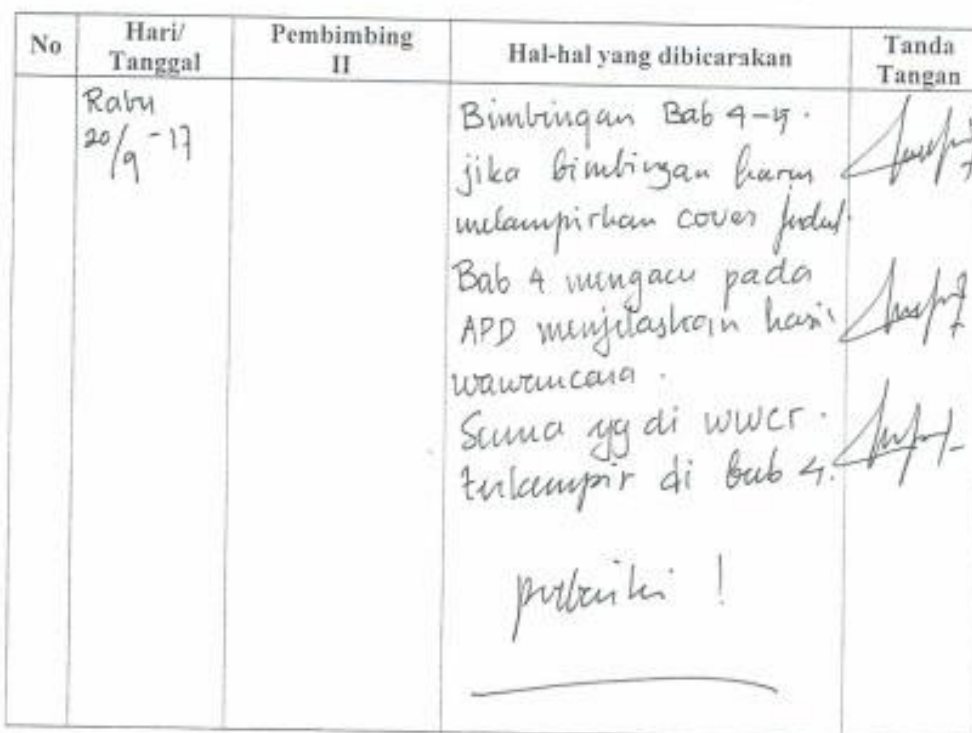 No
Hari/
Tanggal
Pembimbing
II
Hal-hal yang dibicarakan
Tanda
Tangan
Rabu
20/9 - 17
Bimbingan Bab 4-5.
jika bimbingan harus
melampirkan cover judul.
Bab 4 mengacu pada
APD menjelaskan hasil
wawancara.
Semua yg di wwcr.
terlampir di bab 4.
perbaiki !